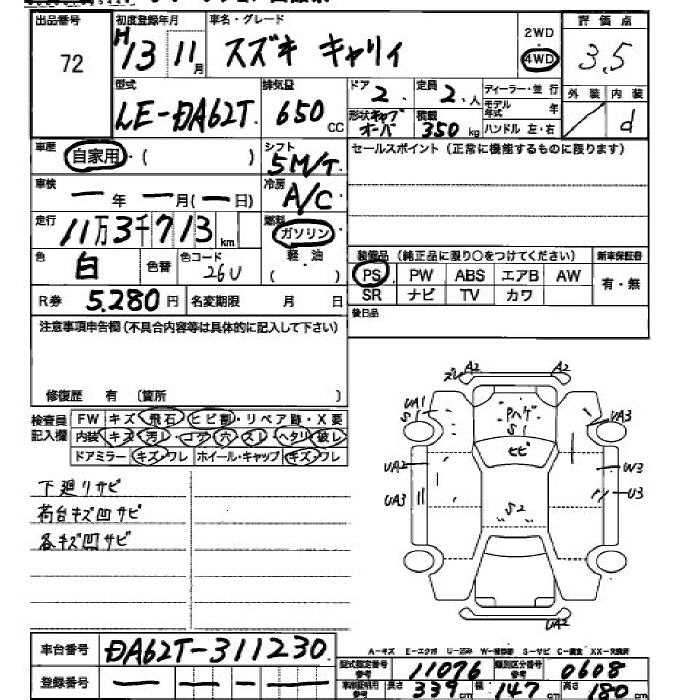 出品番号 初度登録年月 車名・グレード 評価点
72 H13 11月 スズキ キャリィ 2WD 4WD 3.5
型式 排気量 ドア 定員 ディーラー・並行 外装 内装
LE-DA62T 650 CC 2 2人 モデル年式 年 d
形状 キャブオーバ 積載 350 kg ハンドル 左・右
車歴 シフト セールスポイント (正常に機能するものに限ります)
自家用・( ) 5M/T
車検 冷房
ー年ー月(ー日) A/C
走行 燃料
11万3千713km ガソリン
色 カラーコード 軽・油 装備品 (純正品に限り○をつけてください) 新車保証書
白 色替 26U ( ) PS PW ABS エアB AW 有・無
R券 5.280円 名変期限 月 日 SR ナビ TV カワ
注意事項申告欄 (不具合内容等は具体的に記入して下さい) 後日品
修復歴 有 (箇所 )
検査員 FW キズ・飛石・ヒビ割・リペア跡・X要
記入欄 内装 キズ・汚レ・コゲ・穴・スレ・ヘタリ・破レ
ドアミラー キズ・ワレ ホイール・キャップ キズ・ワレ
ズレ A2 A2
UA1 S1 Pハゲ S1 UA3
ヒビ
UA2 W3
UA3 U3
S2
UA2
下廻リサビ
荷台キズ凹サビ
各キズ凹サビ
A-キズ E-エクボ U-凹み W-補修跡 S-サビ C-腐食 XX-交換済
車台番号 DA62T-311230 型式指定番号 参考 11076 類別区分番号 参考 0608
登録番号 ー ー ー ー 車体証明記 参考 長さ 339cm 幅 147cm 高さ 180cm